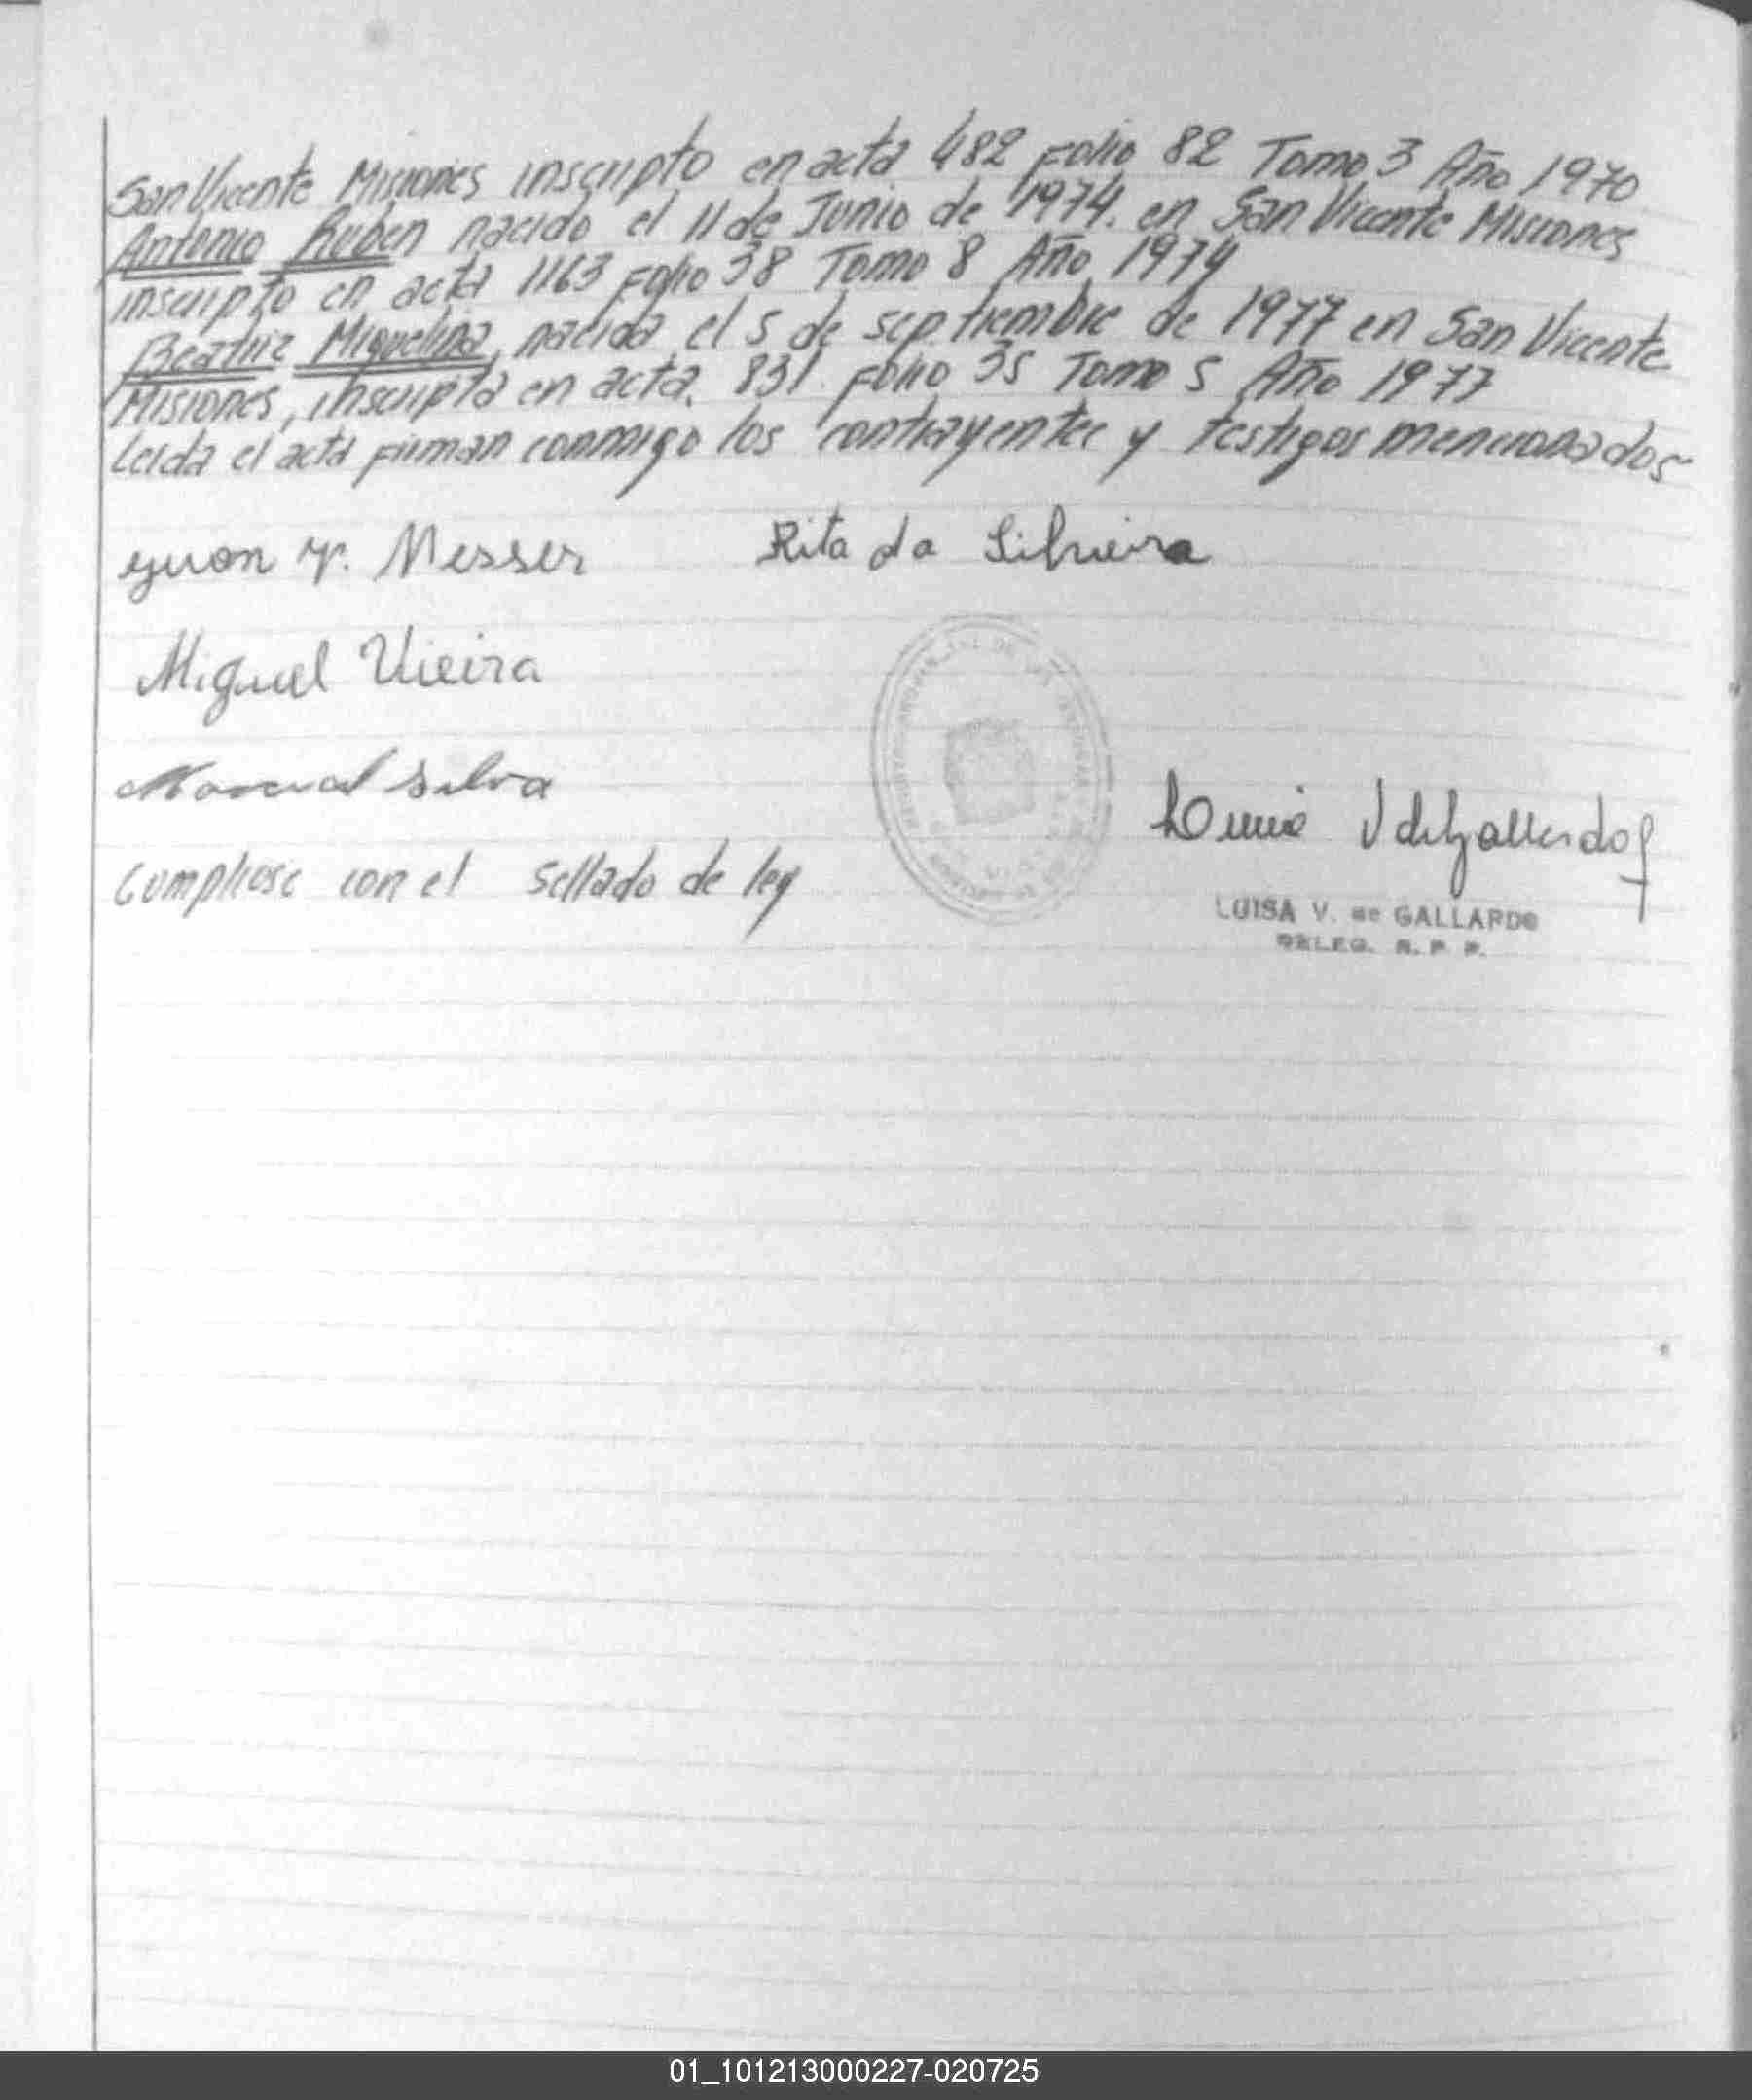 San Vicente Misiones inscripto en acta 482 Folio 82 Tomo 3 Año 1970
Antonio Ruben nacido el 11 de Junio de 1974. en San Vicente Misiones
inscripto en acta 1163 Folio 38 Tomo 8 Año 1974
Beatriz Miguelina, nacida el 5 de septiembre de 1977 en San Vicente
Misiones, inscripta en acta. 831 Folio 35 Tomo 5 Año 1977
Leida el acta firman conmigo los contrayentes y testigos mencionados
Messer Rita da Silveira
Miguel Vieira
Silva
Cumplese con el Sellado de ley
LUISA V. de GALLARDO
DELEG. R. P. P.
01_101213000227-020725